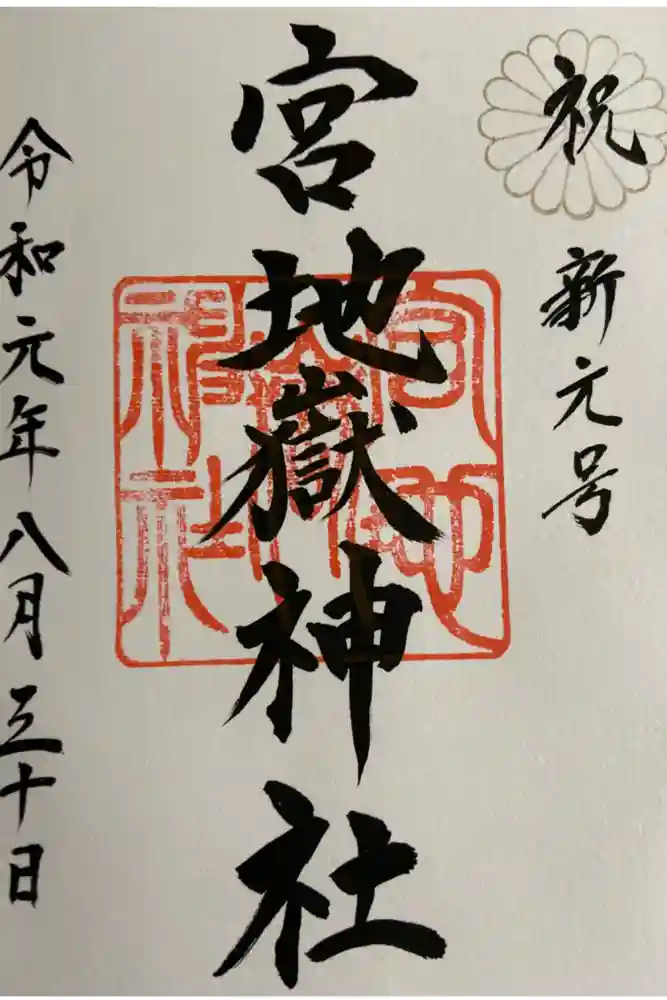 祝
新元号
宮地嶽神社
宮地嶽神社
令和元年八月三十日